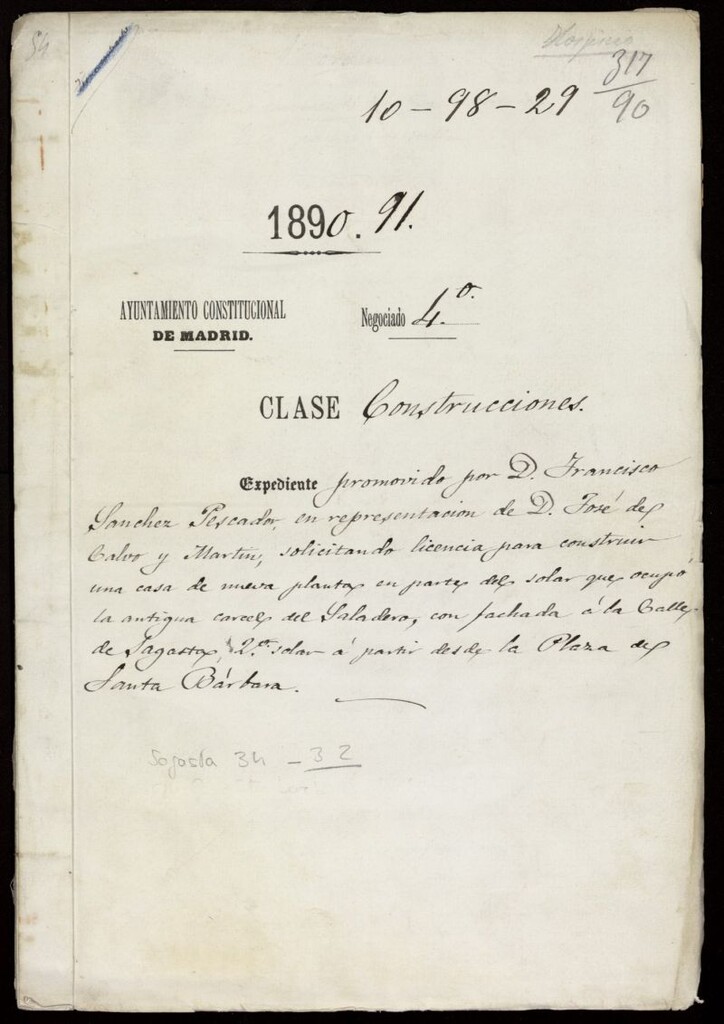 54
Hospicio
317
90
10 - 98 - 29
1890. 91.
AYUNTAMIENTO CONSTITUCIONAL
DE MADRID.
Negociado 4.º
CLASE Construcciones.
Expediente promovido por D. Francisco
Sanchez Pescador, en representacion de D. José de
Calvo y Martin, solicitando licencia para construir
una casa de nueva planta en parte del solar que ocupó
la antigua carcel del Saladero, con fachada á la Calle
de Sagasta, 2.º solar á partir desde la Plaza de
Santa Bárbara.
Sagasta 34 - 32